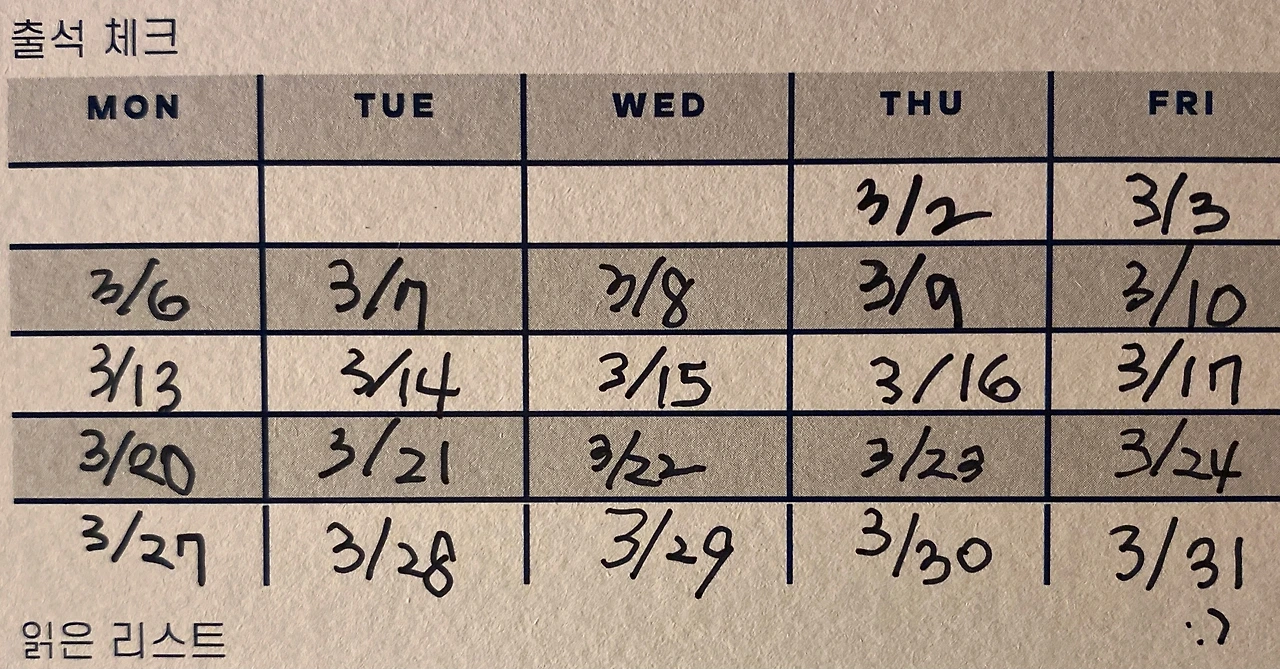 출석 체크
MON TUE WED THU FRI
3/2 3/3
3/6 3/7 3/8 3/9 3/10
3/13 3/14 3/15 3/16 3/17
3/20 3/21 3/22 3/23 3/24
3/27 3/28 3/29 3/30 3/31
:)
읽은 리스트